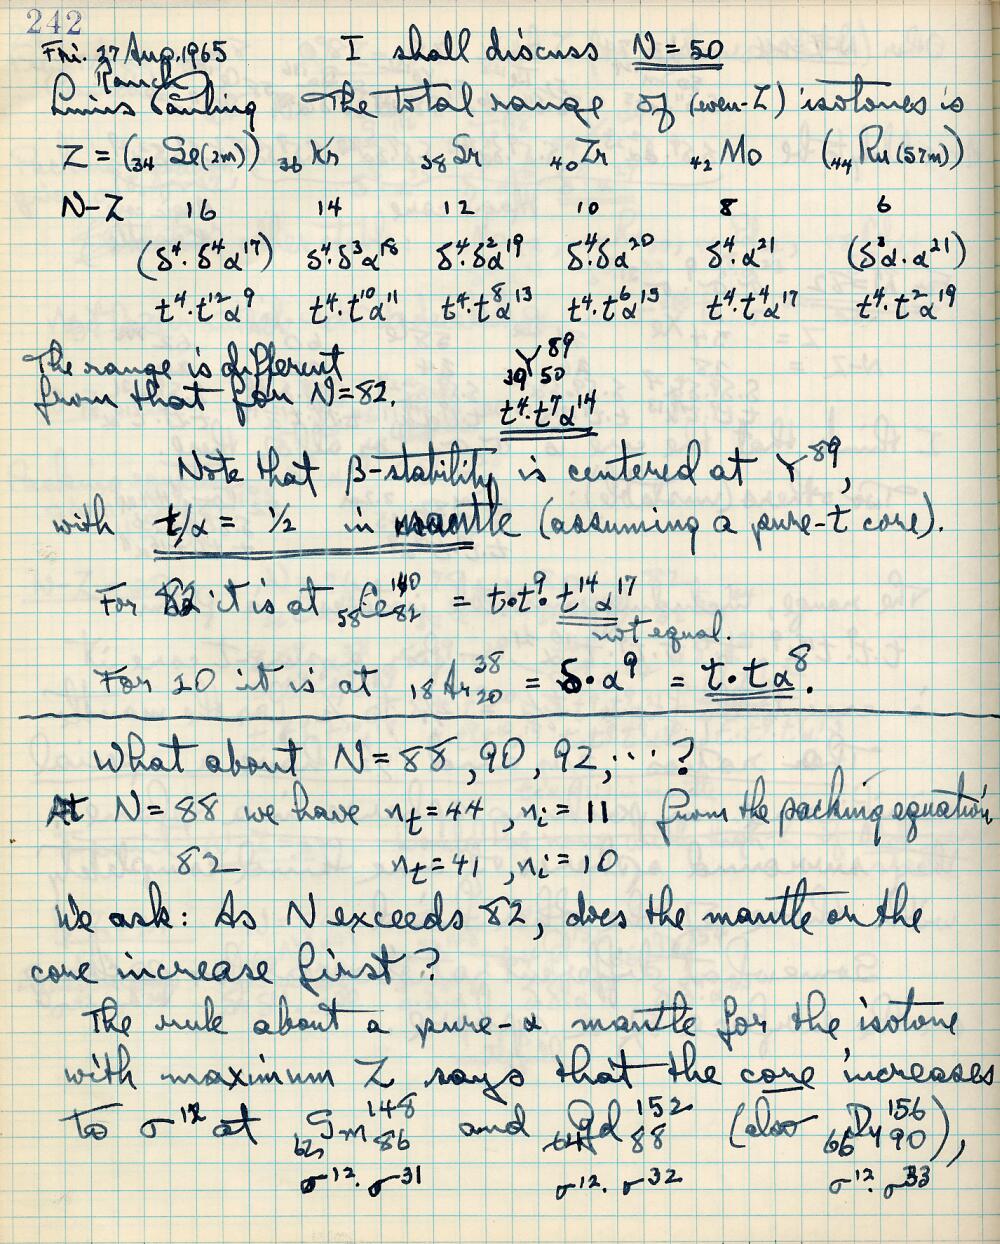 242
Fri. 27 Aug. 1965 I shall discuss N = 50
Ranch
Linus Pauling The total range of (even-Z) isotones is
Z = (₃₄Se(2m)) ₃₆Kr ₃₈Sr ₄₀Zr ₄₂Mo (₄₄Ru(57m))
N-Z 16 14 12 10 8 6
(δ⁴·δ⁴α¹⁷) δ⁴·δ³α¹⁸ δ⁴·δ²α¹⁹ δ⁴·δα²⁰ δ⁴·α²¹ (δ³α·α²¹)
t⁴·t¹²α⁹ t⁴·t¹⁰α¹¹ t⁴·t⁸α¹³ t⁴·t⁶α¹⁵ t⁴·t⁴α¹⁷ t⁴·t²α¹⁹
The range is different ₃₉Y₅₀⁸⁹
from that for N=82. t⁴·t⁷α¹⁴
Note that β-stability is centered at Y⁸⁹,
with t/α = 1/2 in mantle (assuming a pure-t core).
For 82 it is at ₅₈Ce₈₂¹⁴⁰ = t·t⁹·t¹⁴α¹⁷
not equal.
For 20 it is at ₁₈Ar₂₀³⁸ = δ·α⁹ = t·tα⁸.
What about N = 88, 90, 92, ··· ?
At N = 88 we have nₜ = 44, nᵢ = 11 from the packing equation
82 nₜ = 41, nᵢ = 10
We ask: As N exceeds 82, does the mantle or the
core increase first?
The rule about a pure-α mantle for the isotone
with maximum Z says that the core increases
to σ¹² at ₆₂Sm₈₆¹⁴⁸ and ₆₄Gd₈₈¹⁵² (also ₆₆Dy₉₀¹⁵⁶),
σ¹²·σ³¹ σ¹²·σ³² σ¹²·σ³³